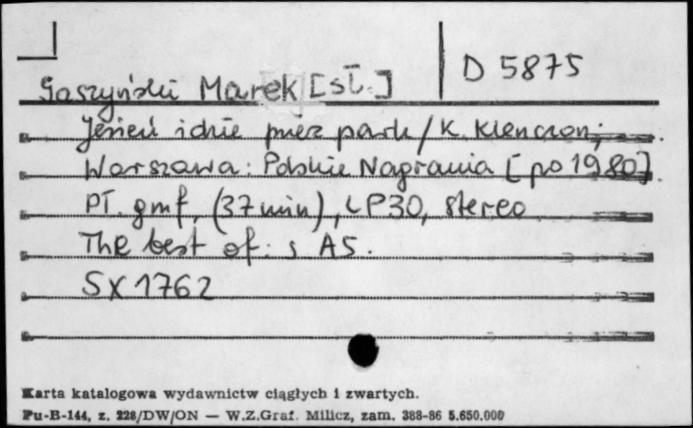 D 5875
Gaszyński Marek [sł.]
Jesień idzie przez park / K. Klenczon;
Warszawa: Polskie Nagrania [po 1980].
Pł. gmf. (37 min), LP30, stereo
The best of: s A5.
SX 1762
Karta katalogowa wydawnictw ciągłych i zwartych.
Pu-B-144, z. 228/DW/ON — W.Z.Graf. Milicz, zam. 388-86 5.650.000